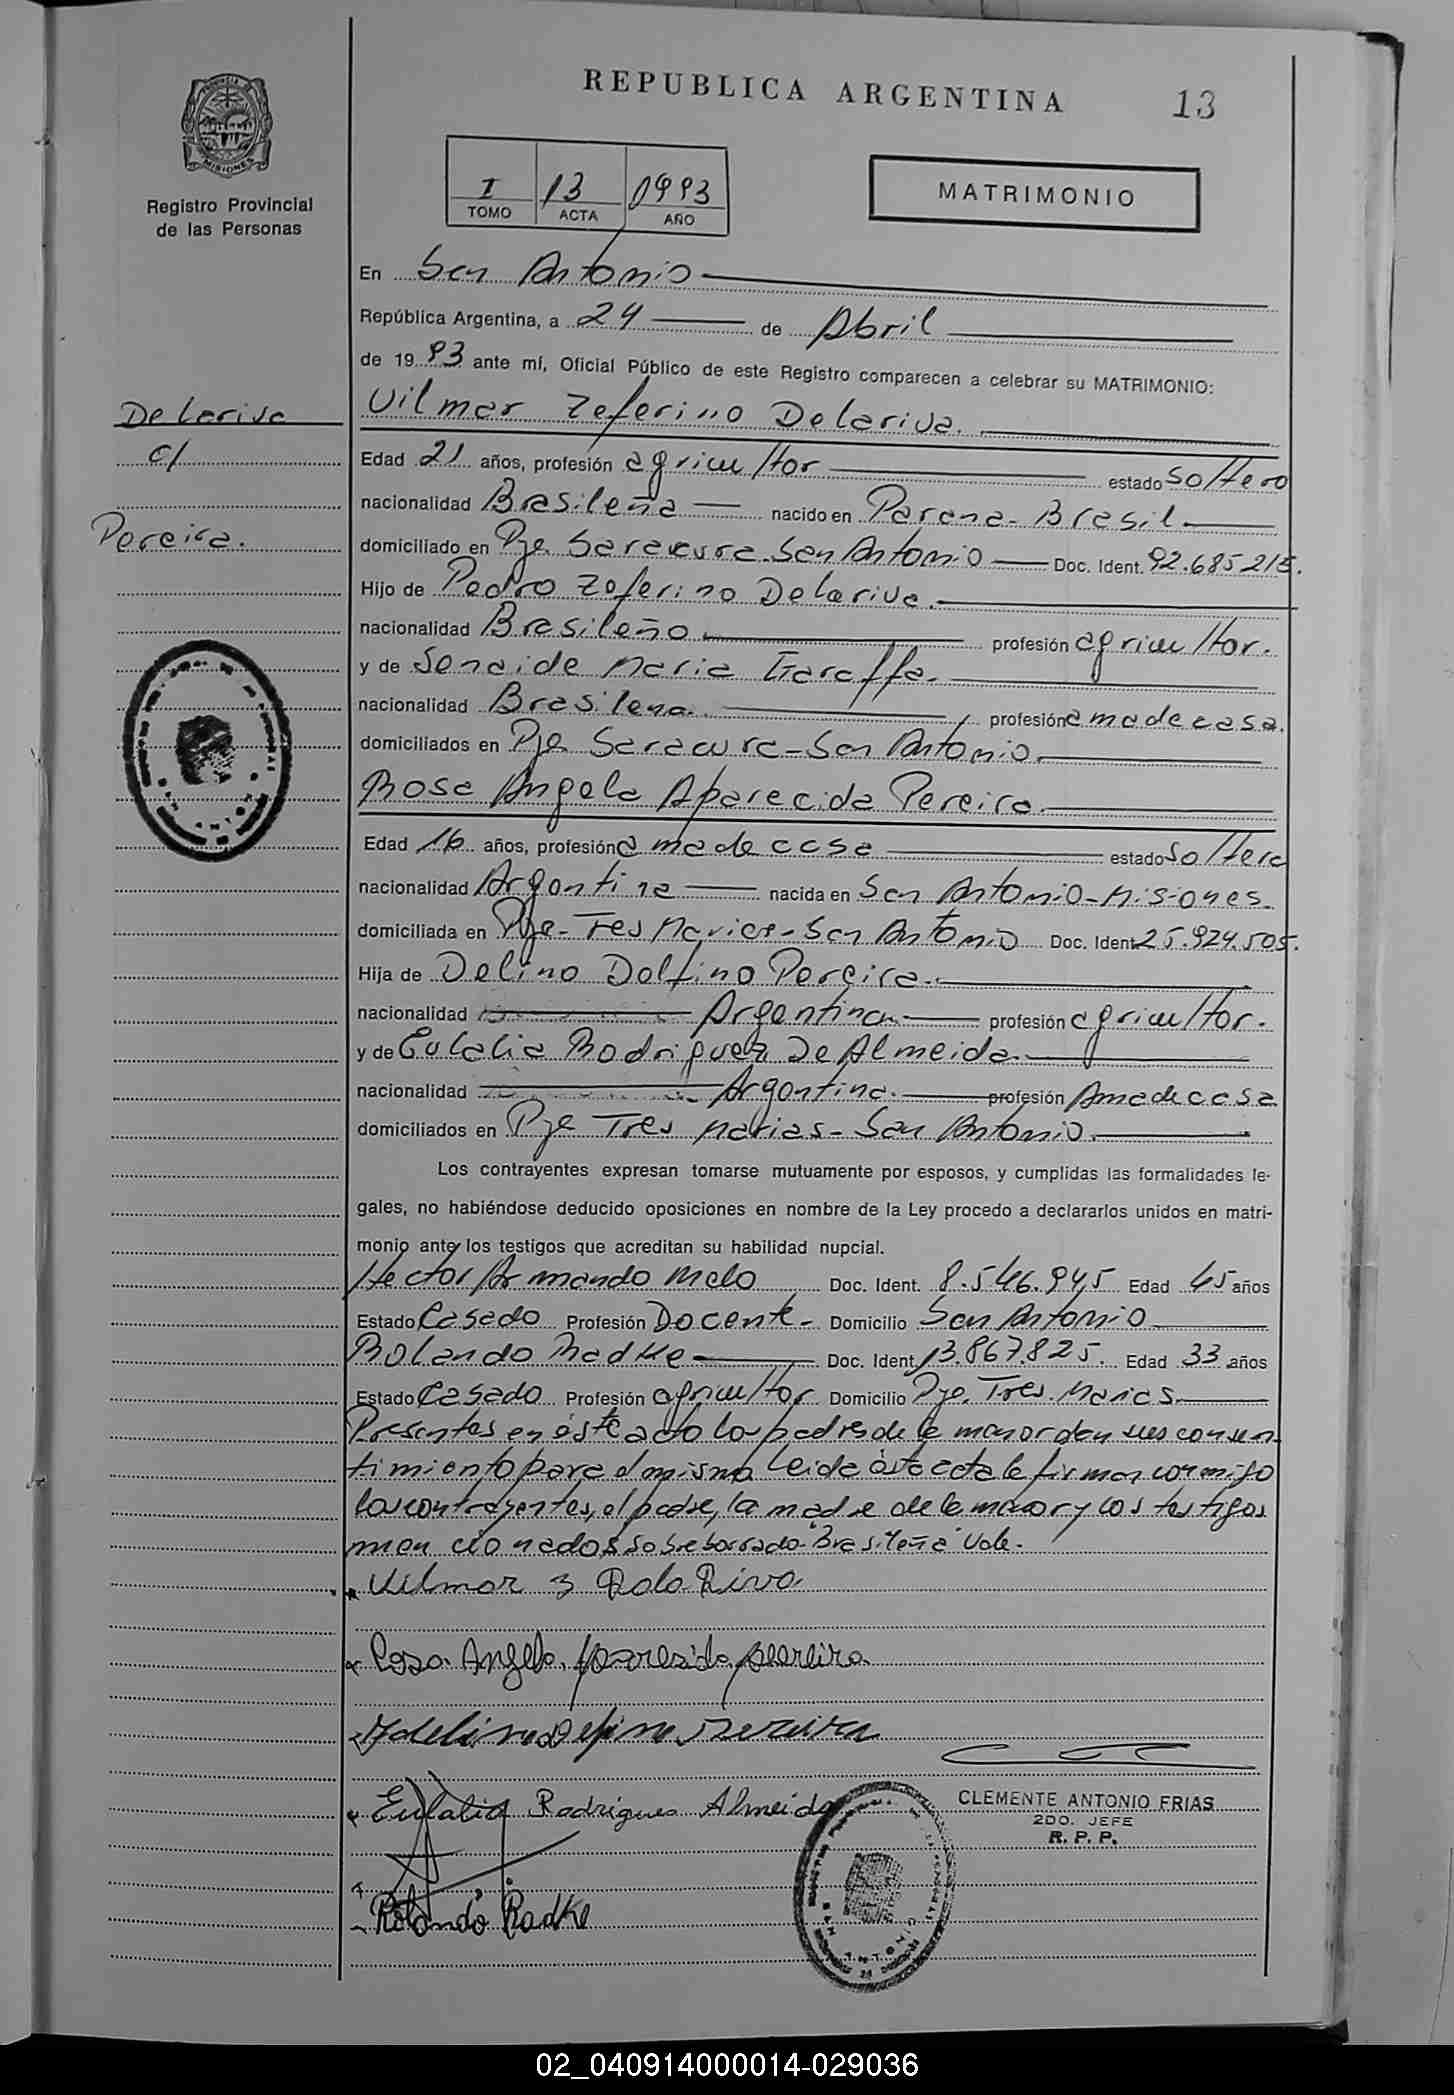 REPUBLICA ARGENTINA
13
PROVINCIA DE
MISIONES
Registro Provincial
de las Personas
I 13 1993
TOMO ACTA AÑO
MATRIMONIO
En San Antonio
República Argentina, a 24 de Abril
de 1993 ante mí, Oficial Público de este Registro comparecen a celebrar su MATRIMONIO:
Delariva
c/
Pereira.
Vilmar Zeferino Delariva.
Edad 21 años, profesión agricultor estado soltero
nacionalidad Brasileña nacido en Parana-Brasil
domiciliado en Pje Saracura San Antonio Doc. Ident. 92.685.215.
Hijo de Pedro Zeferino Delariva.
nacionalidad Brasileño profesión agricultor.
y de Senaide Maria
nacionalidad Brasilena. profesión ama de casa.
domiciliados en Pje Saracura-San Antonio.
Rosa Angela Aparecida Pereira.
Edad 16 años, profesión ama de casa estado soltera
nacionalidad Argentina nacida en San Antonio-Misiones.
domiciliada en Pje-Tres Marias-San Antonio Doc. Ident. 25.924.505.
Hija de Delino Dolfino Pereira.
nacionalidad Argentina profesión agricultor.
y de Eulalia Rodriguez De Almeida.
nacionalidad Argentina. profesión Ama de casa
domiciliados en Pje Tres Marias-San Antonio.
Los contrayentes expresan tomarse mutuamente por esposos, y cumplidas las formalidades le-
gales, no habiéndose deducido oposiciones en nombre de la Ley procedo a declararlos unidos en matri-
monio ante los testigos que acreditan su habilidad nupcial.
Hector Armando Melo Doc. Ident. 8.546.945 Edad 45 años
Estado Casado Profesión Docente- Domicilio San Antonio
Rolando Radke Doc. Ident. 13.867.825. Edad 33 años
Estado Casado Profesión agricultor Domicilio Pje. Tres Marias
Presentes en éste acto los padres de la menor dan su consen-
timiento para el mismo Leida ésta acta la firman conmigo
los contrayentes, el padre, la madre de la menor y los testigos
mencionados sobre borrado "Brasileña" Vale.
Vilmar Z Dala Riva
Rosa Angela Aparesida Pereira
Adelino Delfino Pereira
Eulalia Rodrigues Almeida
CLEMENTE ANTONIO FRIAS
2DO. JEFE
R. P. P.
Rolando Radke
02_040914000014-029036